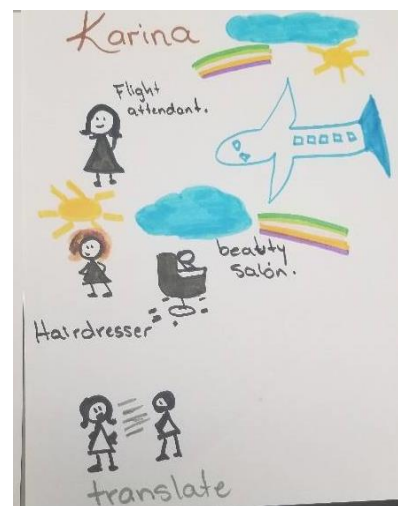 Karina
Flight
attendant.
beauty
salón.
Hairdresser
translate